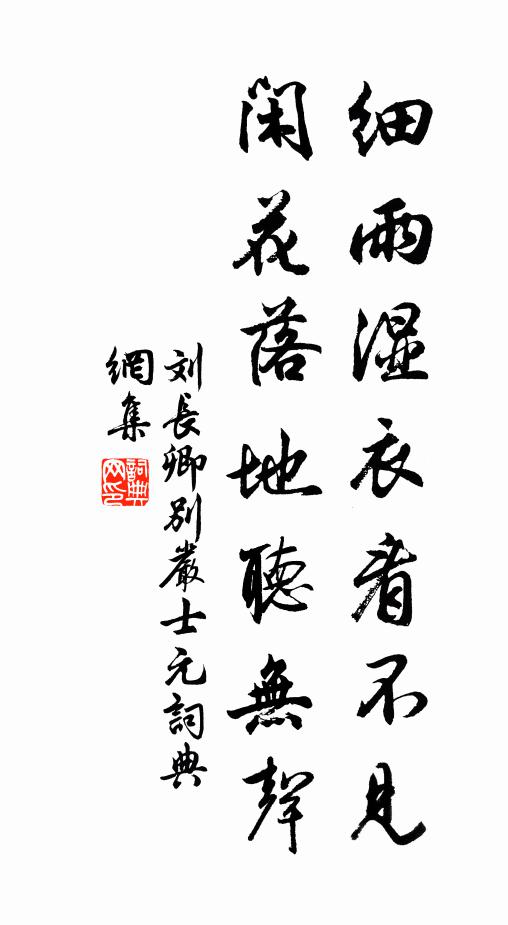 細雨湿衣看不見
閑花落地聽無聲
刘長卿别嚴士元詞典
網集
詞典
网印